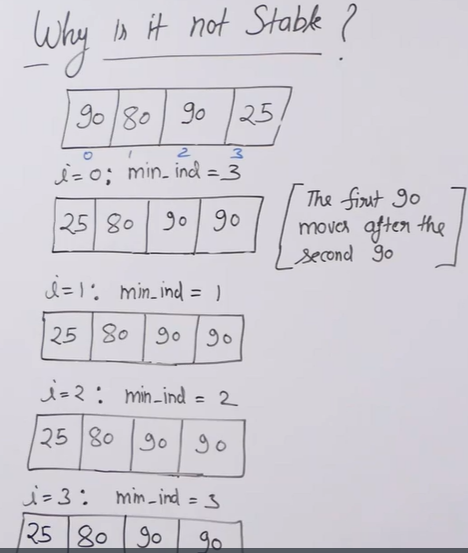 Why is it not Stable?
90 80 90 25
0 1 2 3
i=0; min_ind = 3
25 80 90 90
[The first 90
moves after the
second 90]
i=1: min_ind = 1
25 80 90 90
i=2: min_ind = 2
25 80 90 90
i=3: min_ind = 3
25 80 90 90